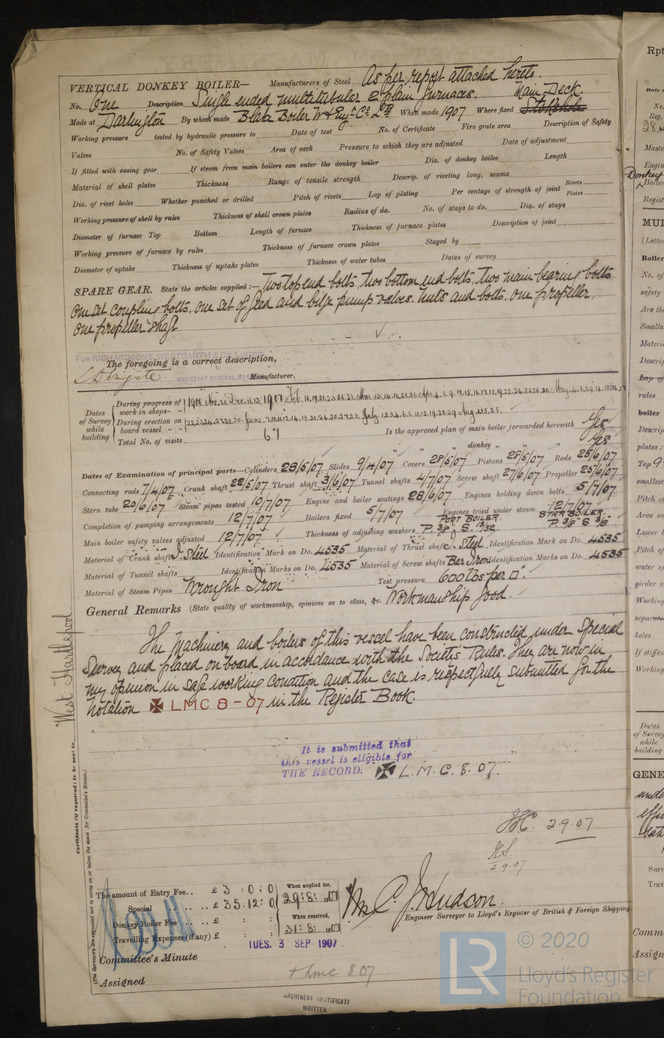 VERTICAL DONKEY BOILER— Manufacturers of Steel As per report attached hereto.
No. One Description Single ended multitubular 2 plain furnaces. Main Deck
Made at Darlington By whom made Blake Boiler W & Eng. Co. Ltd When made 1907 Where fixed Stokehole
Working pressure tested by hydraulic pressure to Date of test No. of Certificate Fire grate area Description of Safety
Valves No. of Safety Valves Area of each Pressure to which they are adjusted Date of adjustment
If fitted with easing gear If steam from main boilers can enter the donkey boiler Dia. of donkey boiler Length
Material of shell plates Thickness Range of tensile strength Descrip. of riveting long. seams
Dia. of rivet holes Whether punched or drilled Pitch of rivets Lap of plating Per centage of strength of joint Rivets Plates
Working pressure of shell by rules Thickness of shell crown plates Radius of do. No. of stays to do. Dia. of stays
Diameter of furnace Top Bottom Length of furnace Thickness of furnace plates Description of joint
Working pressure of furnace by rules Thickness of furnace crown plates Stayed by
Diameter of uptake Thickness of uptake plates Thickness of water tubes Dates of survey
SPARE GEAR. State the articles supplied:— Two top end bolts, two bottom end bolts, two main bearing bolts
one set coupling bolts, one set of feed and bilge pump valves. nuts and bolts. one propeller.
one propeller shaft
The foregoing is a correct description,
FOR RICHARDSONS, WESTGARTH & CO.
ASSISTANT GENERAL MANAGER Manufacturer.
Dates of Survey while building
During progress of work in shops--
During erection on board vessel---
Total No. of visits 67
Is the approved plan of main boiler forwarded herewith Yes
" " " donkey " " " Yes
Dates of Examination of principal parts—Cylinders 28/5/07 Slides 9/4/07 Covers 28/5/07 Pistons 28/5/07 Rods 25/6/07
Connecting rods 7/4/07 Crank shaft 28/5/07 Thrust shaft 3/6/07 Tunnel shafts 4/7/07 Screw shaft 27/6/07 Propeller 25/6/07
Stern tube 20/6/07 Steam pipes tested 10/7/07 Engine and boiler seatings 28/6/07 Engines holding down bolts 5/7/07
Completion of pumping arrangements 12/7/07 Boilers fixed 5/7/07 Engines tried under steam 12/7/07
Main boiler safety valves adjusted 12/7/07 Thickness of adjusting washers PORT BOILER. P. 3/8" S. 13/32 STAR BOILER P. 3/8" S. 3/8
Material of Crank shaft I. Steel Identification Mark on Do. 4535 Material of Thrust shaft I. Steel Identification Mark on Do. 4535
Material of Tunnel shafts Identification Marks on Do. 4535 Material of Screw shafts Bar Iron Identification Marks on Do. 4535
Material of Steam Pipes Wrought Iron Test pressure 600 lbs per □".
General Remarks (State quality of workmanship, opinions as to class, &c. Workmanship Good.
The Machinery and boilers of this vessel have been constructed under Special
Survey and placed on board in accordance with the Society's Rules. They are now in
my opinion in safe working condition and the case is respectfully submitted for the
notation ✠ LMC 8-07 in the Register Book.
It is submitted that
this vessel is eligible for
THE RECORD. ✠ L.M.C. 8.07.
2.9.07
2.9.07
West Hartlepool
Certificate (if required) to be sent to
(The Surveyors are requested not to write on or below the space for Committee's Minute.)
The amount of Entry Fee.. £ 3 : 0 : 0 When applied for,
Special £ 35 : 12 : 0 29 : 8 : 1907
Donkey Boiler Fee £ : : When received,
Travelling Expenses (if any) £ : : 31 : 8 : 1907
Wm. C. J. Hudson.
Engineer Surveyor to Lloyd's Register of British & Foreign Shipping
Committee's Minute TUES. 3 SEP 1907
Assigned + Lmc 8 07
MACHINERY CERTIFICATE
WRITTEN.
LR © 2020
Lloyd's Register
Foundation